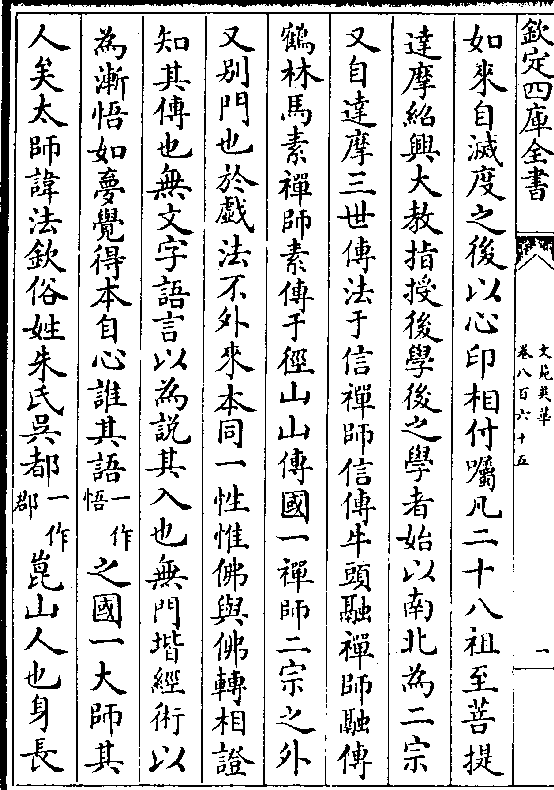 欽定四庫全書
文苑英華
卷八百六十五
一
如來自滅度之後以心印相付囑凡二十八祖至菩提
達摩紹興大教指授後學後之學者始以南北為二宗
又自達摩三世傳法于信禪師信傳牛頭融禪師融傳
鶴林馬素禪師素傳于徑山山傳國一禪師二宗之外
又别門也於戯法不外來本同一性惟佛與佛轉相證
知其傳也無文字語言以為說其入也無門堦經術以
為漸悟如夢覺得本自心誰其語一作悟之國一大師其
人矣太師諱法欽俗姓朱氏吳都一作郡崑山人也身長